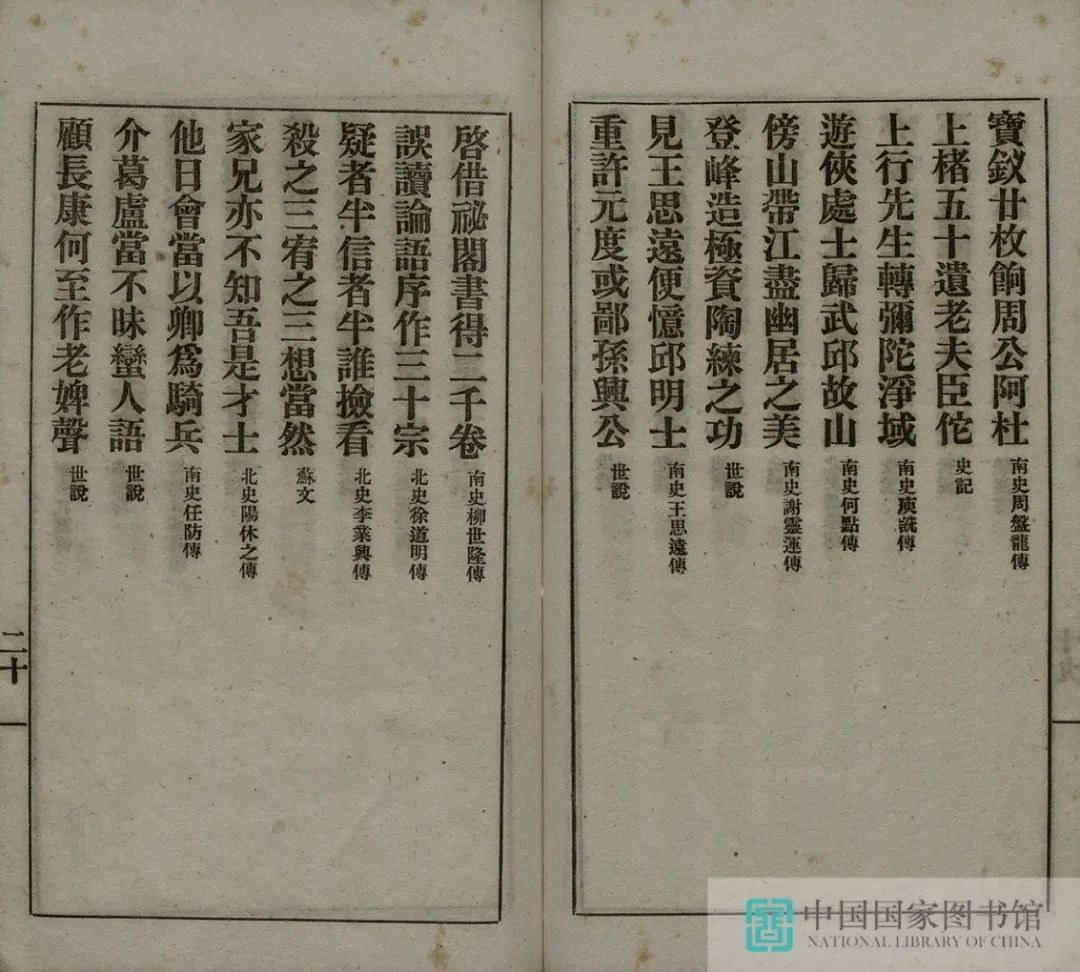 寶釵廿枚餉周公阿杜 南史周盤龍傳
上楮五十遺老夫臣佗 史記
上行先生轉彌陀淨域 南史庾詵傳
遊俠處士歸武邱故山 南史何點傳
傍山帶江盡幽居之美 南史謝靈運傳
登峰造極資陶練之功 世說
見王思遠便憶邱明士 南史王思遠傳
重許元度或鄙孫興公 世說
啓借祕閣書得二千卷 南史柳世隆傳
誤讀論語序作三十宗 北史徐道明傳
疑者半信者半誰撿看 北史李業興傳
殺之三宥之三想當然 蘇文
家兄亦不知吾是才士 北史陽休之傳
他日會當以卿爲騎兵 南史任防傳
介葛盧當不昧蠻人語 世說
顧長康何至作老婢聲 世說
二十
中国国家图书馆
NATIONAL LIBRARY OF CHINA